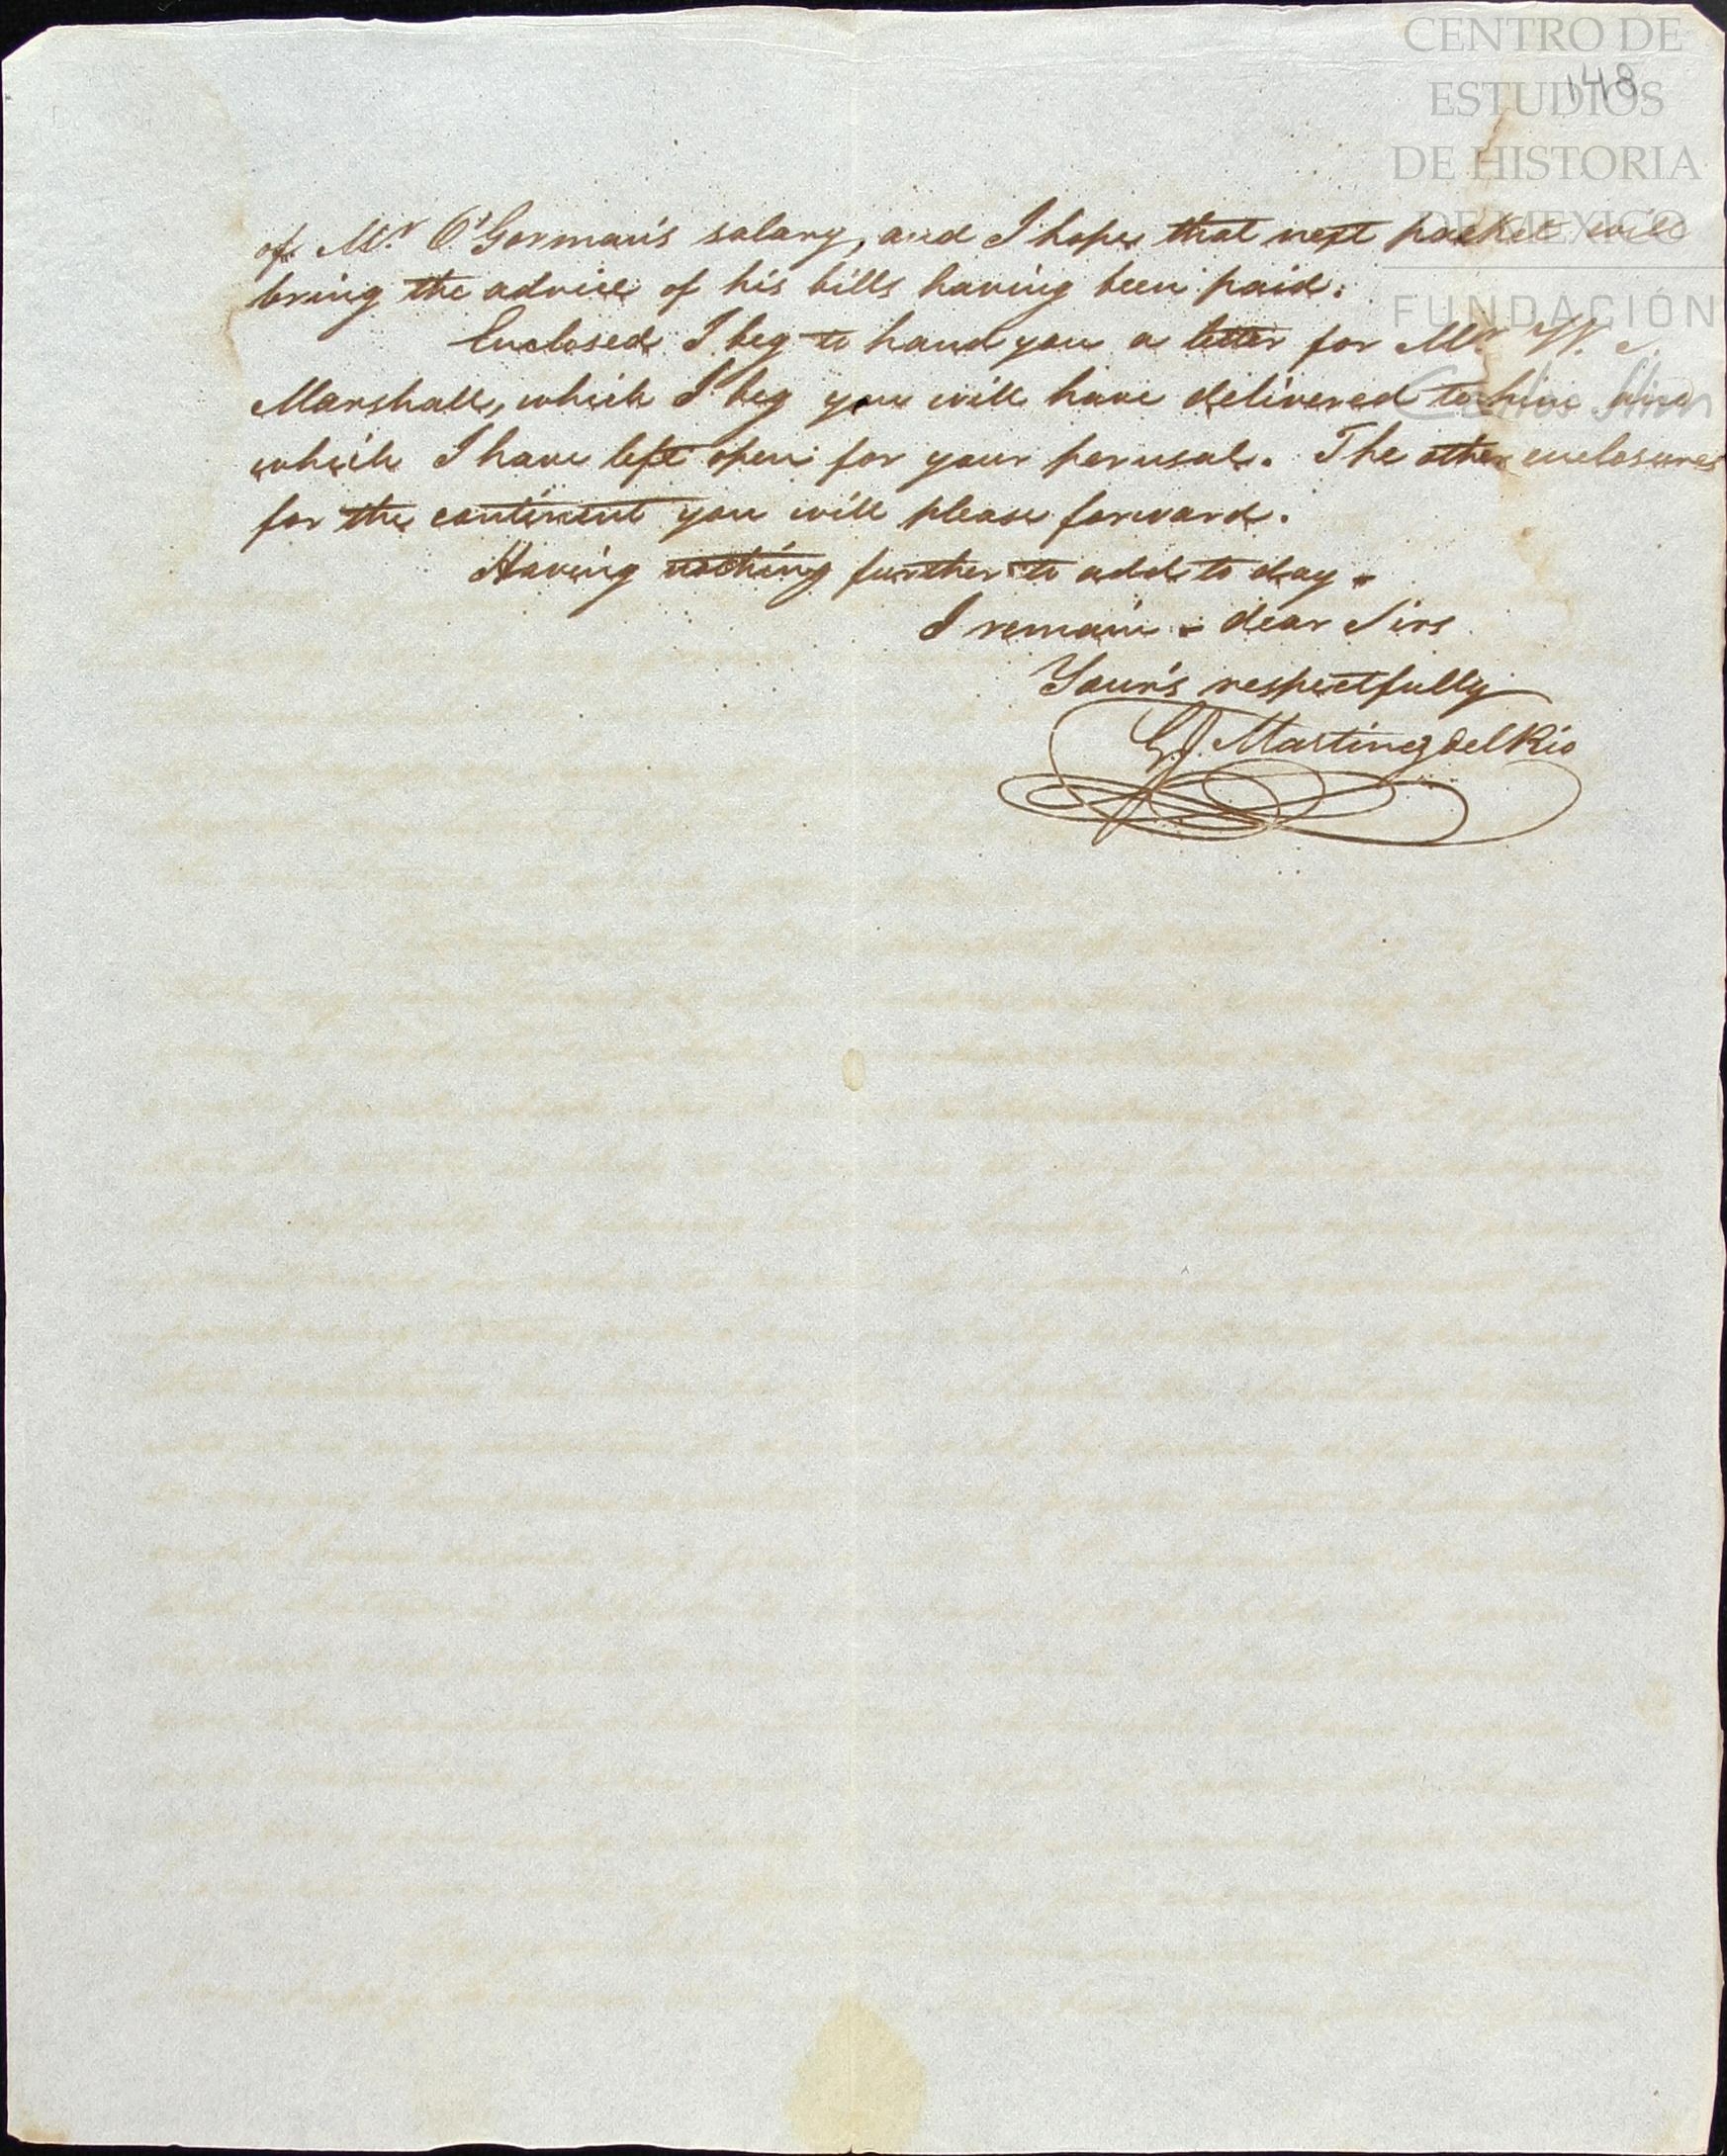 CENTRO DE
ESTUDIOS
DE HISTORIA
DE MEXICO
FUNDACIÓN
Carlos Slim
148
of Mr. O'Gorman's salary, and I hope that next packet will
bring the advice of his bills having been paid.
Enclosed I beg to hand you a letter for Mr. W.
Marshall, which I beg you will have delivered to him
which I have left open for your perusal. The other enclosures
for the continent you will please forward.
Having nothing further to add to day.
I remain dear Sirs
Your's respectfully
G. J. Martinez del Rio